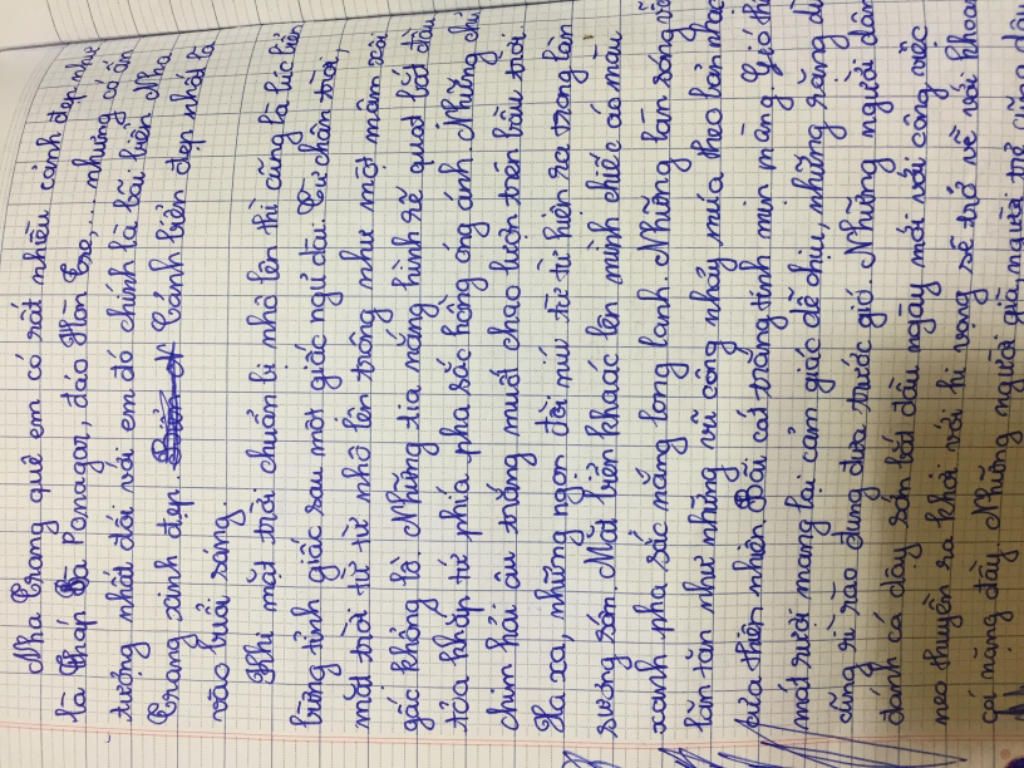 Nha Trang quê em có rất nhiều cảnh đẹp như
là Tháp Bà Ponagar, đảo Hòn Tre,... nhưng có ấn
tượng nhất đối với em đó chính là bãi biển Nha
Trang xinh đẹp. Cảnh biển đẹp nhất là
vào buổi sáng.
Khi mặt trời chuẩn bị nhô lên thì cũng là lúc biển
bừng tỉnh giấc sau một giấc ngủ dài. Từ chân trời,
mặt trời từ từ nhô lên trông như một mâm xôi
gấc khổng lồ. Những tia nắng hình rẽ quạt bắt đầu
tỏa khắp từ phía pha sắc hồng óng ánh. Những chú
chim hải âu trắng muốt chao lượn trên bầu trời.
Xa xa, những ngọn đồi núi từ từ hiện ra trong làn
sương sớn. Mặt biển khoác lên mình chiếc áo màu
xanh pha sắc nắng long lanh. Những làn sóng
lăn tăn như những vũ công nhảy múa theo bản nhạc
của thiên nhiên. Bãi cát trắng tinh mịn màng. Gió
mát rượi mang lại cảm giác dễ chịu, những rặng
cũng rì rào đung đưa trước gió. Những người dân
đánh cá dậy sớm bắt đầu ngày mới với công việc
neo thuyền ra khơi với hi vọng sẽ trở về với khoang
cá nặng đầy. Những người già, người trẻ cũng